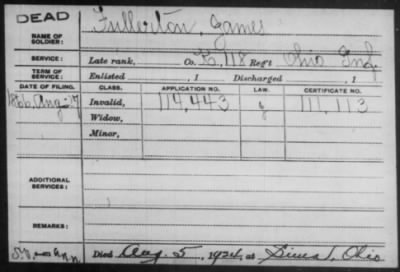 DEAD
Fullerton, James
NAME OF SOLDIER:
SERVICE: Late rank, Co. K, 118 Reg't Ohio Inf.
TERM OF SERVICE: Enlisted , 1 Discharged , 1
DATE OF FILING. CLASS. APPLICATION NO. LAW. CERTIFICATE NO.
Aug. 7 Invalid, 114,443 111,113
Widow,
Minor,
ADDITIONAL SERVICES:
REMARKS:
Died Aug. 5, 1924, at Lima, Ohio